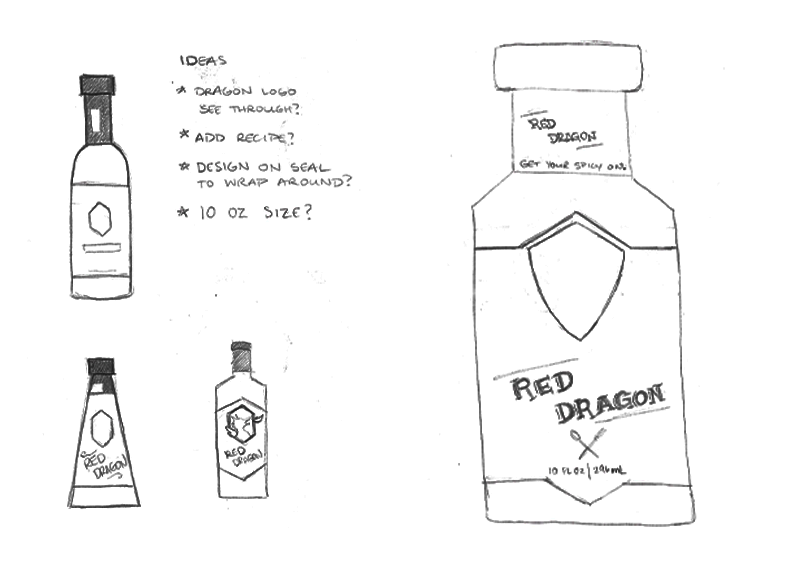 IDEAS
* DRAGON LOGO
SEE THROUGH?
* ADD RECIPE?
* DESIGN ON SEAL
TO WRAP AROUND?
* 10 OZ SIZE?
RED
DRAGON
GET YOUR SPICY ON.
RED
DRAGON
10 FL OZ | 296 mL
RED
DRAGON
RED
DRAGON